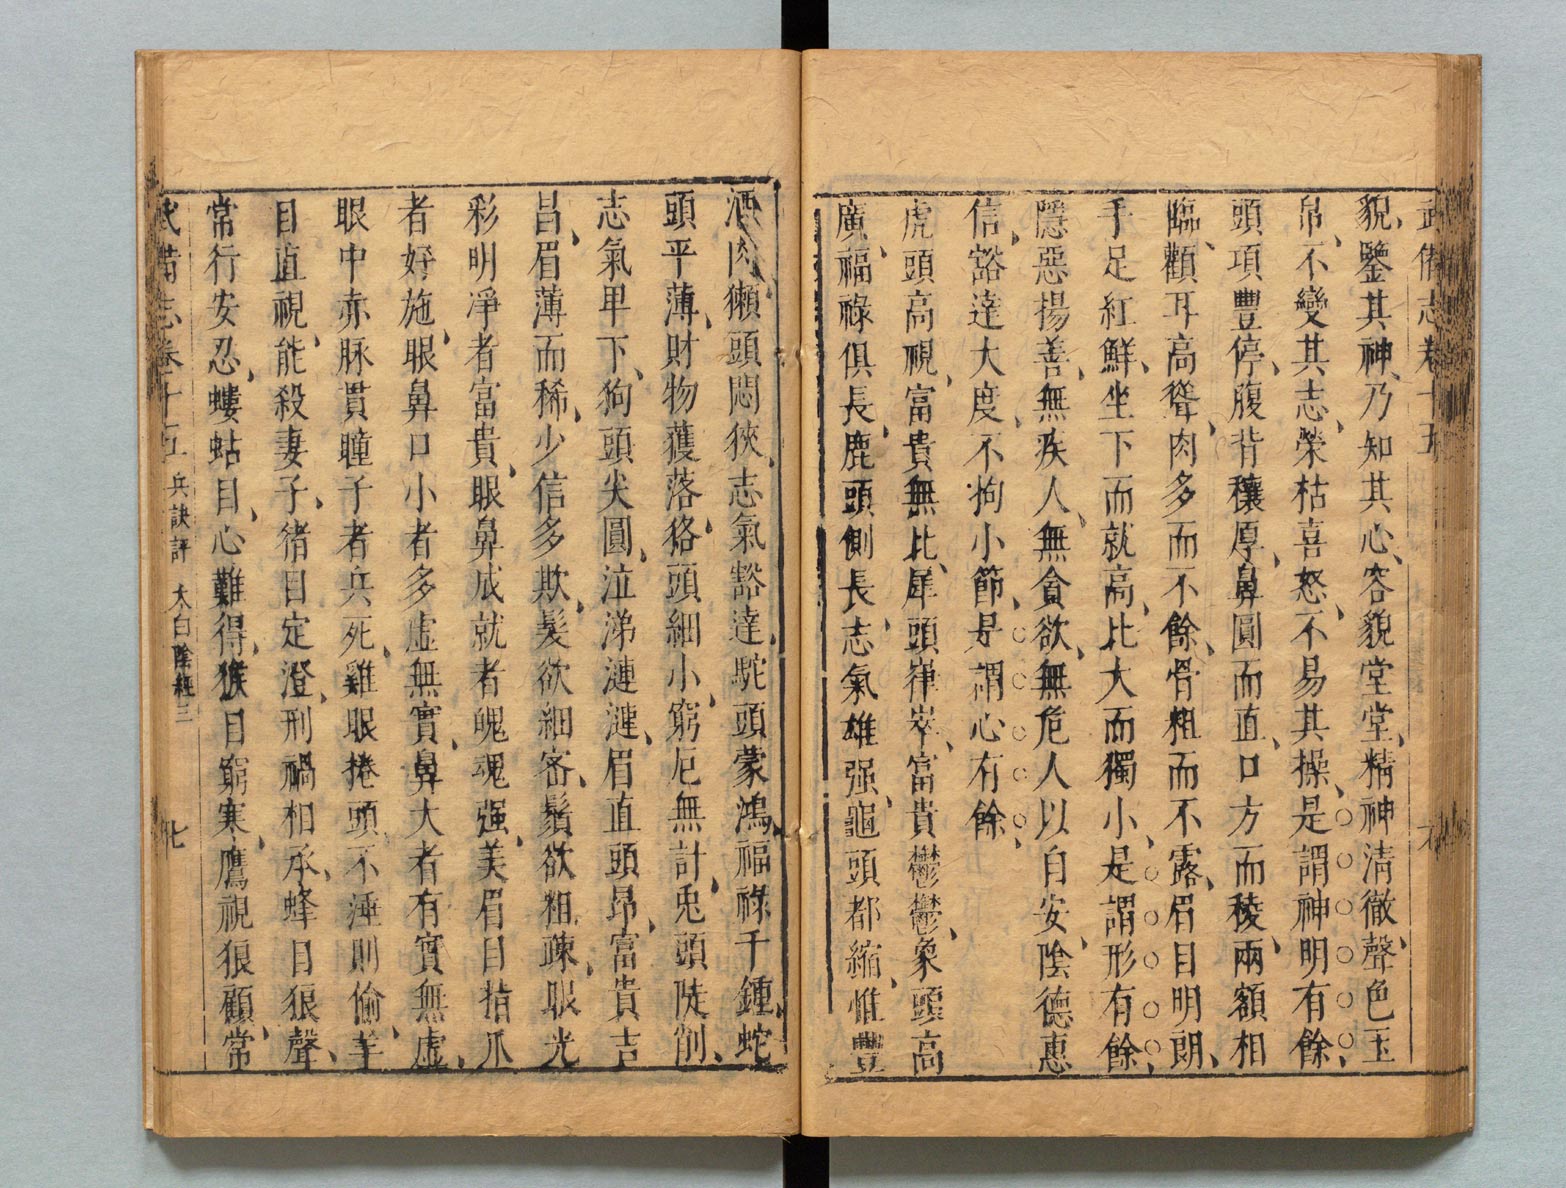 武備志卷十五 六
貌、鑒其神、乃知其心、容貌堂堂、精神清徹、聲色玉
帛、不變其志、榮枯喜怒、不易其操、是謂神明有餘、
頭項豐停、腹背穰厚、鼻圓而直、口方而稜、兩額相
臨、顴耳高聳、肉多而不餘、骨粗而不露、眉目明朗、
手足紅鮮、坐下而就高、比大而獨小、是謂形有餘、
隱惡揚善、無疾人、無貪欲、無危人以自安、陰德惠
信、豁達大度、不拘小節、是謂心有餘、
虎頭高視、富貴無比、犀頭嵂崒、富貴鬱鬱、象頭高
廣、福祿俱長、鹿頭側長、志氣雄强、龜頭都縮、惟豐
酒肉、獺頭悶狹、志氣豁達、駝頭蒙鴻、福祿千鍾、蛇
頭平薄、財物獲落、狢頭細小、窮厄無計、兎頭陡削、
志氣卑下、狗頭尖圓、泣涕漣漣、眉直頭昂、富貴吉
昌、眉薄而稀、少信多欺、髮欲細密、鬚欲粗疎、眼光
彩明凈者富貴、眼鼻成就者魄魂强、美眉目指爪
者好施、眼鼻口小者多虛無實、鼻大者有實無虛、
眼中赤脉貫瞳子者兵死、雞眼捲頭不湩則偷、羊
目直視、能殺妻子、猪目定澄、刑禍相承、蜂目狼聲、
常行安忍、螻蛄目、心難得、猴目窮寒、鷹視狼顧、常
武備志卷十五 兵訣評 太白陰經三 七